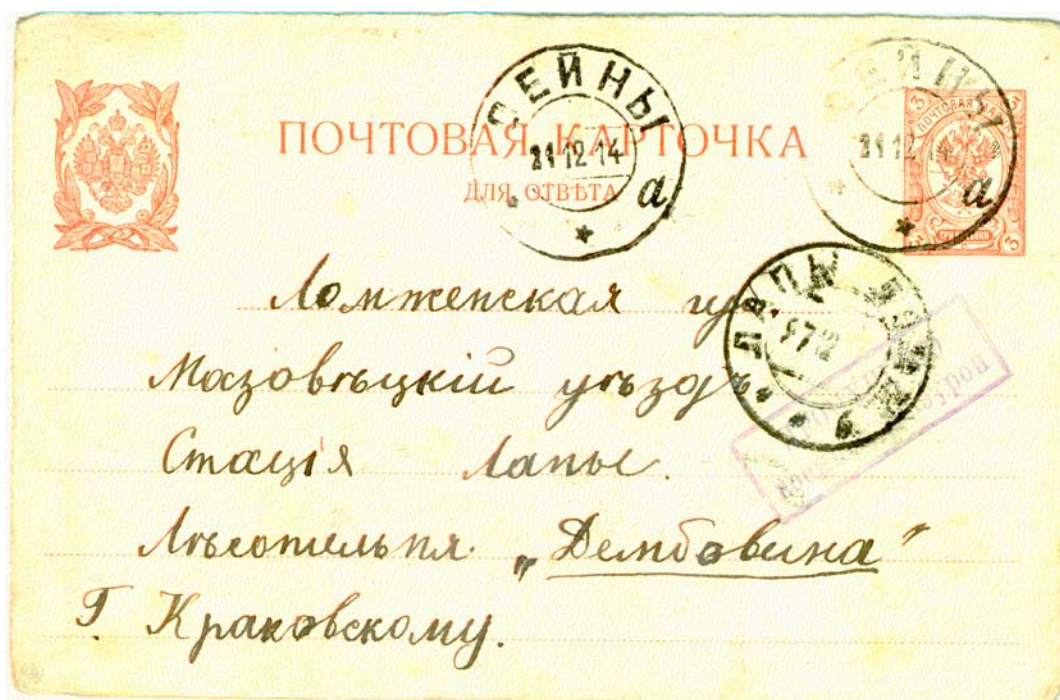 ПОЧТОВАЯ КАРТОЧКА
ДЛЯ ОТВѢТА
СЕЙНЫ
21 12 14
а
СЕЙНЫ
21 12 14
а
ПОЧТОВАЯ
3
3
3
3
ЛАПЫ
Ломженская гу
Мазовѣцкій уѣздъ
Стація Лапы.
Лѣсопильня „Дембовина"
Г. Краковскому.